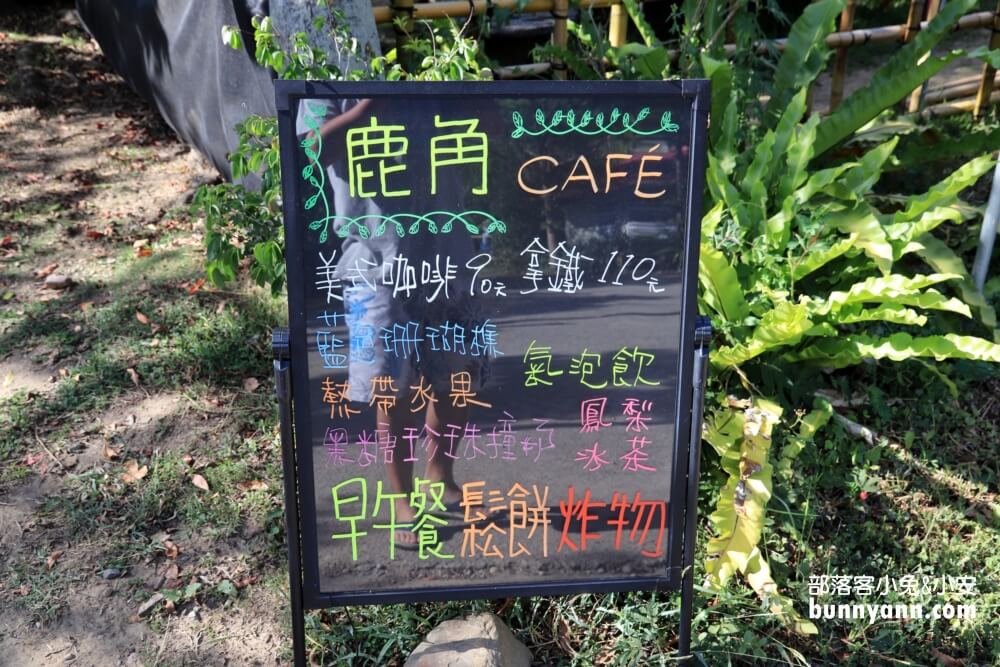 鹿角 CAFÉ
美式咖啡 90元 拿鐵 110元
藍色珊瑚樵
氣泡飲
熱帶水果
鳳梨
冰茶
黑糖珍珠撞奶
早午餐 鬆餅 炸物
部落客小兔&小安
bunnyann.com